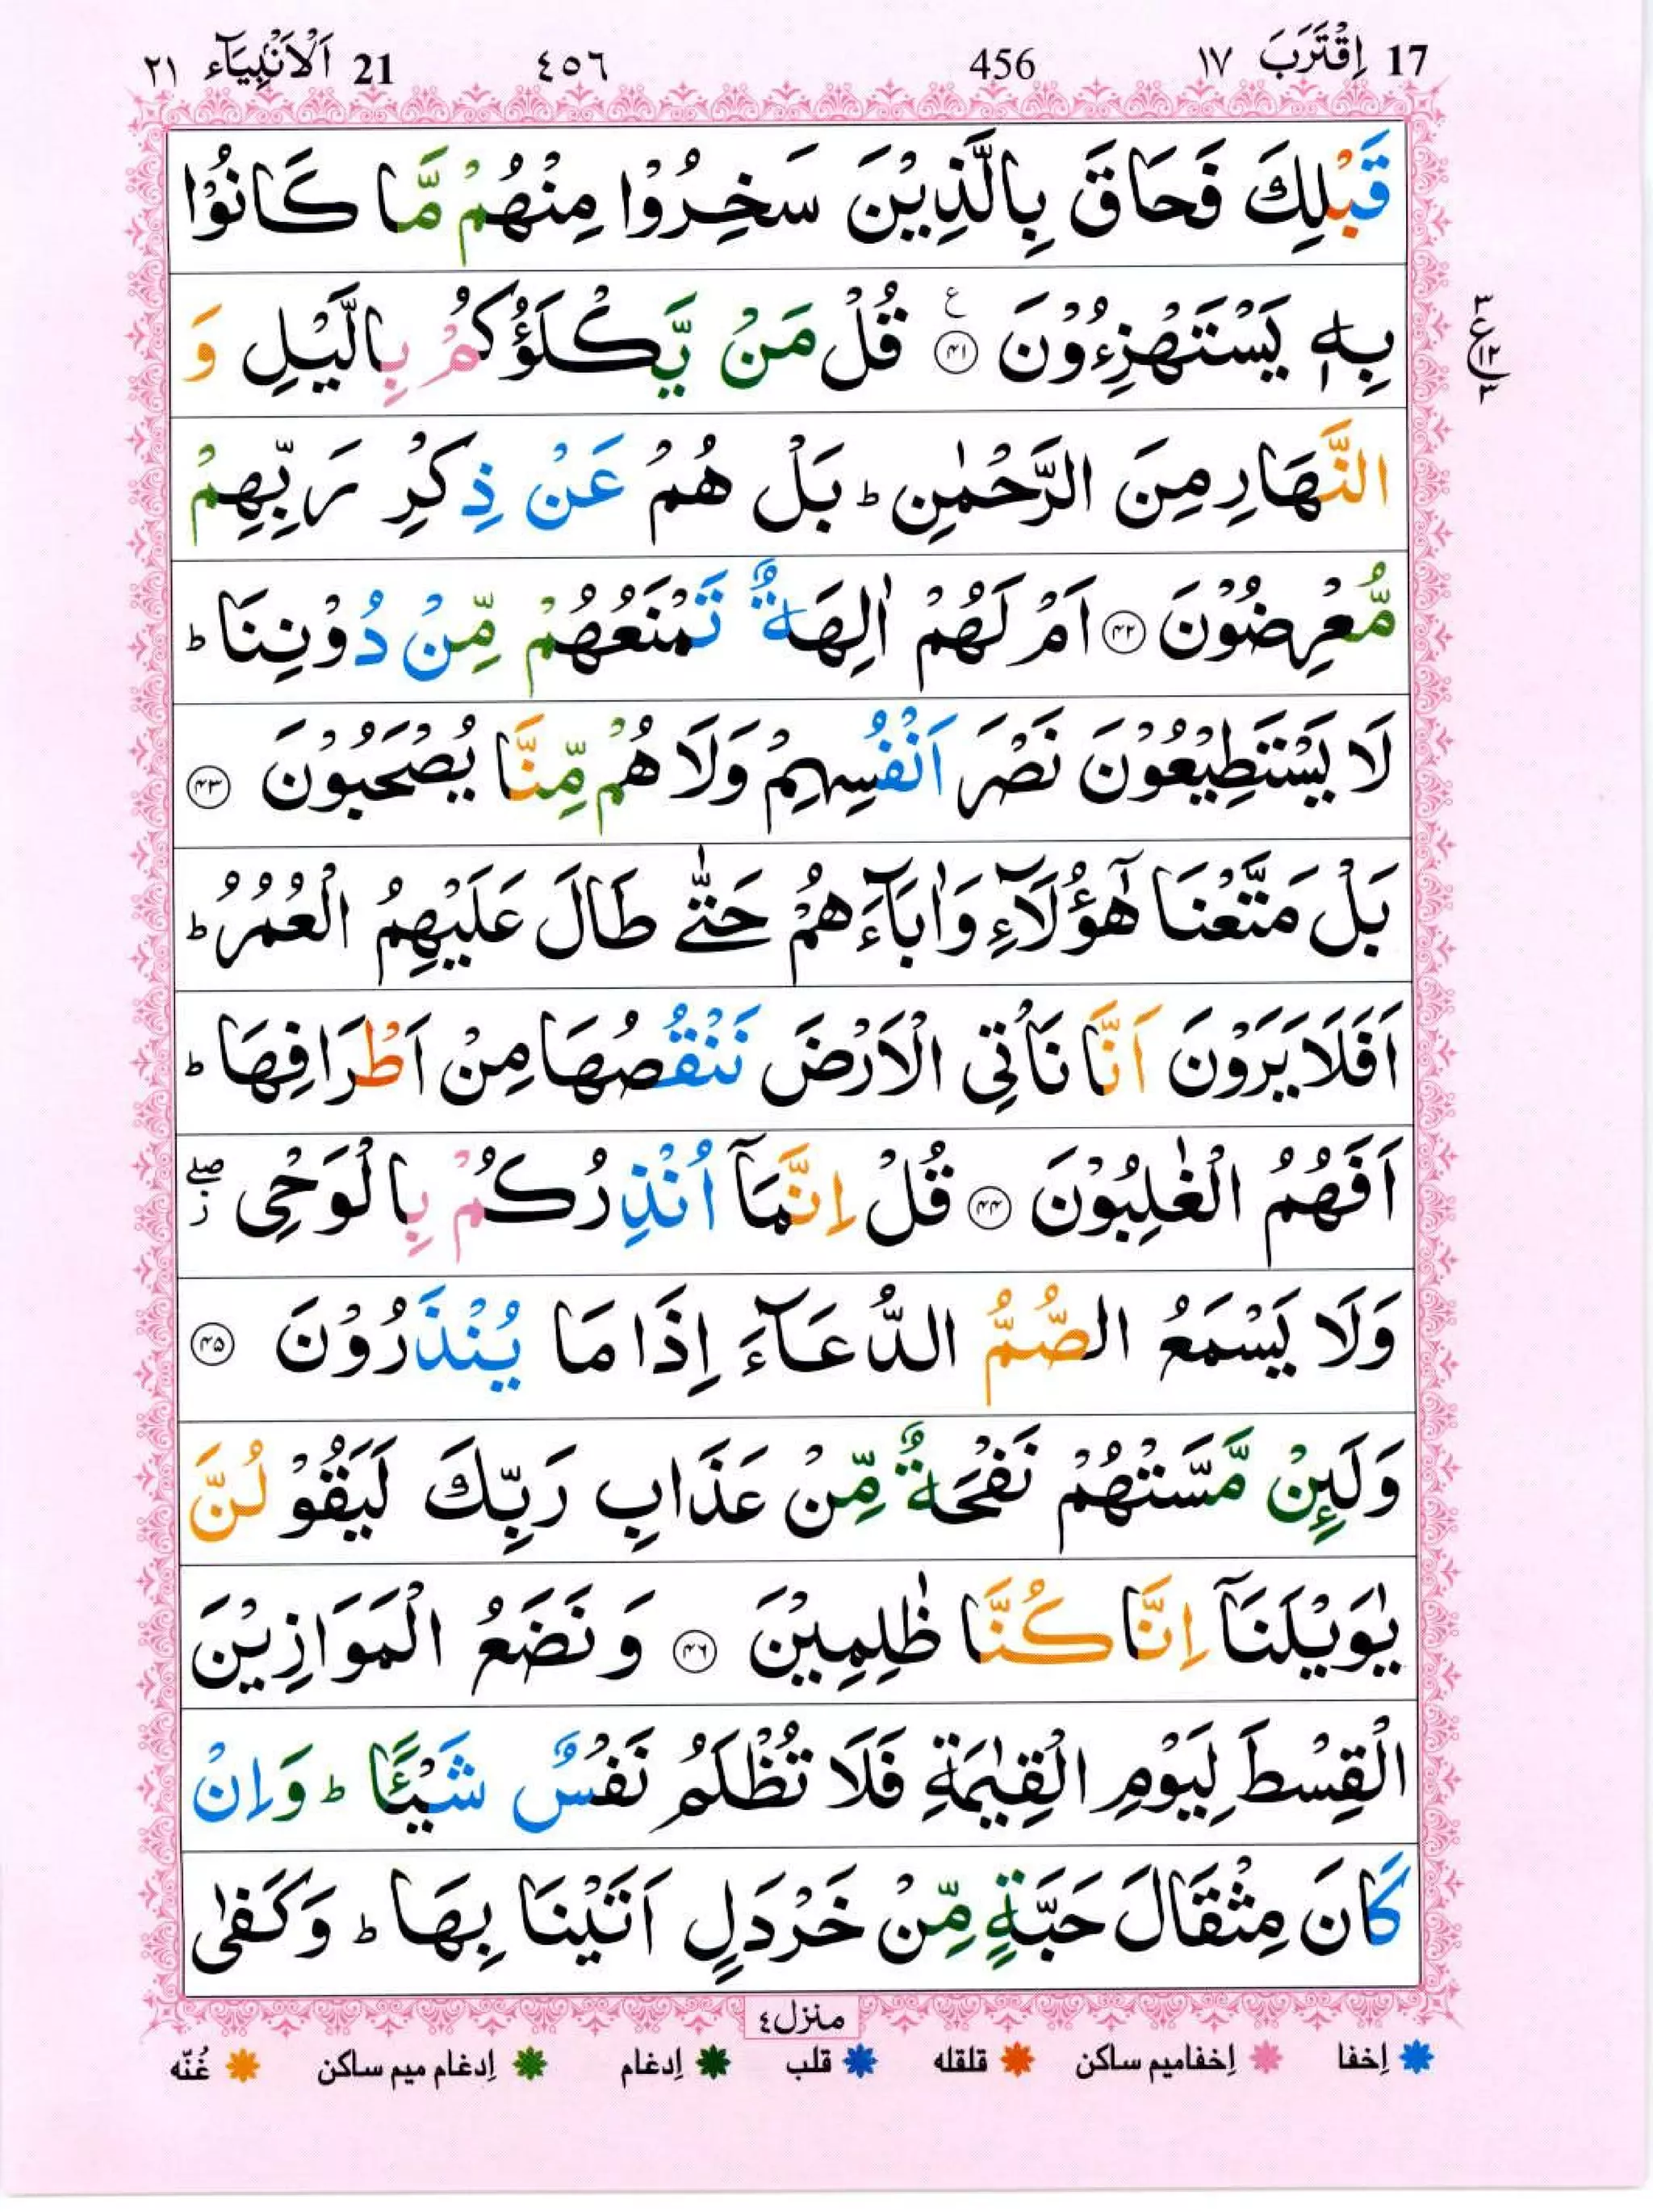 17 اِقْتَرَبَ ١٧ 456 ٤٥٦ 21 اَلْاَنْۢبِيَآء ٢١
قَبْلِكَ فَحَاقَ بِالَّذِيْنَ سَخِرُوْا مِنْهُمْ مَّا كَانُوْا
بِهٖ يَسْتَهْزِءُوْنَ ﴿۴۱﴾ ع قُلْ مَنْ يَّكْلَؤُكُمْ بِالَّيْلِ وَ
ع ٣ ١٢ ٣
النَّهَارِ مِنَ الرَّحْمٰنِ ؕ بَلْ هُمْ عَنْ ذِكْرِ رَبِّهِمْ
مُّعْرِضُوْنَ ﴿۴۲﴾ اَمْ لَهُمْ اٰلِهَةٌ تَمْنَعُهُمْ مِّنْ دُوْنِنَا ؕ
لَا يَسْتَطِيْعُوْنَ نَصْرَ اَنْفُسِهِمْ وَلَا هُمْ مِّنَّا يُصْحَبُوْنَ ﴿۴۳﴾
بَلْ مَتَّعْنَا هٰٓؤُلَآءِ وَاٰبَآءَهُمْ حَتّٰى طَالَ عَلَيْهِمُ الْعُمُرُ ؕ
اَفَلَا يَرَوْنَ اَنَّا نَاْتِى الْاَرْضَ نَنْقُصُهَا مِنْ اَطْرَافِهَا ؕ
اَفَهُمُ الْغٰلِبُوْنَ ﴿۴۴﴾ قُلْ اِنَّمَآ اُنْذِرُكُمْ بِالْوَحْىِ ۖ ز
وَلَا يَسْمَعُ الصُّمُّ الدُّعَآءَ اِذَا مَا يُنْذَرُوْنَ ﴿۴۵﴾
وَلَئِنْ مَّسَّتْهُمْ نَفْحَةٌ مِّنْ عَذَابِ رَبِّكَ لَيَقُوْلُنَّ
يٰوَيْلَنَآ اِنَّا كُنَّا ظٰلِمِيْنَ ﴿۴۶﴾ وَنَضَعُ الْمَوَازِيْنَ
الْقِسْطَ لِيَوْمِ الْقِيٰمَةِ فَلَا تُظْلَمُ نَفْسٌ شَيْـًٔا ؕ وَاِنْ
كَانَ مِثْقَالَ حَبَّةٍ مِّنْ خَرْدَلٍ اَتَيْنَا بِهَا ؕ وَكَفٰى
منزل ٤
اِخفا اِخفا میم ساکن قلقله قلب اِدغام اِدغام میم ساکن غُنّه